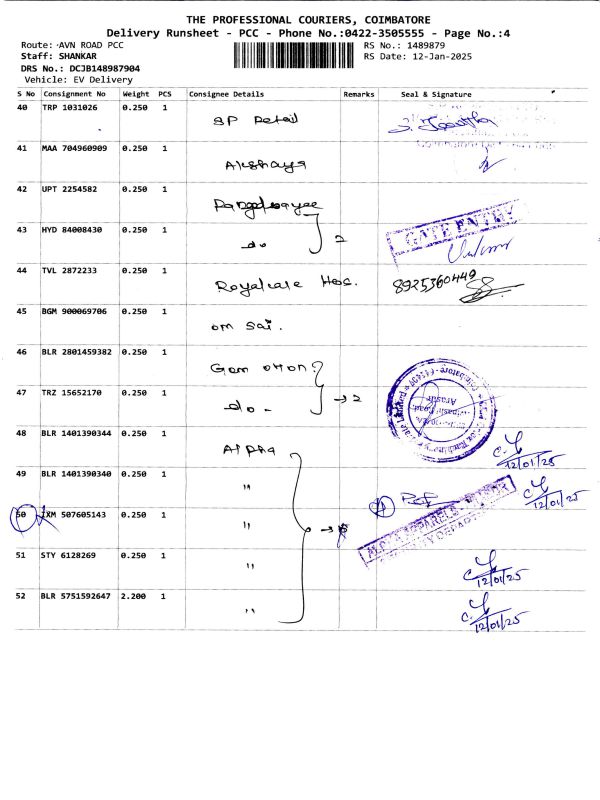 THE PROFESSIONAL COURIERS, COIMBATORE
Delivery Runsheet - PCC - Phone No.:0422-3505555 - Page No.:4
Route: AVN ROAD PCC
RS No.: 1489879
Staff: SHANKAR
RS Date: 12-Jan-2025
DRS No.: DCJB148987904
Vehicle: EV Delivery
S No Consignment No Weight PCS Consignee Details Remarks Seal & Signature
40 TRP 1031026 0.250 1 SP Retail
41 MAA 704960909 0.250 1 Akshaya
42 UPT 2254582 0.250 1
43 HYD 84008430 0.250 1 do 2 GATE ENTRY
44 TVL 2872233 0.250 1 Royalcare Hos. 8925360449
45 BGM 900069706 0.250 1 om sai.
46 BLR 2801459382 0.250 1
47 TRZ 15652170 0.250 1 do - → 2
48 BLR 1401390344 0.250 1 Alpha 12/01/25
49 BLR 1401390340 0.250 1 " 12/01/25
50 IXM 507605143 0.250 1 "
51 STY 6128269 0.250 1 " 12/01/25
52 BLR 5751592647 2.200 1 " 12/01/25